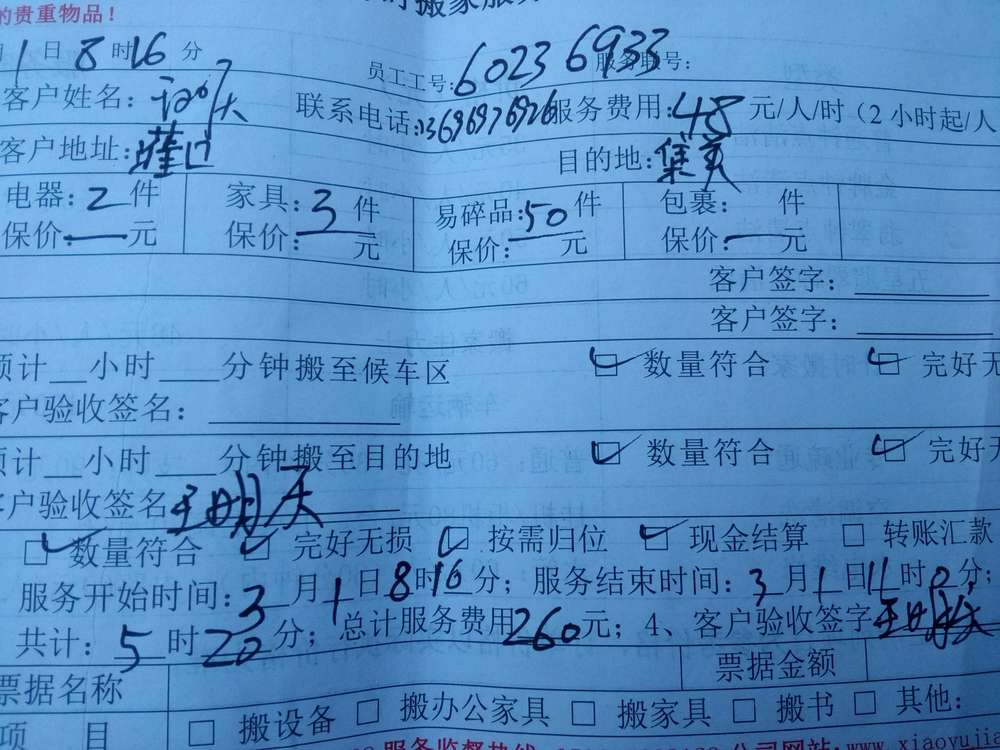 的贵重物品！
搬家服
月1日8时16分 员工工号:60236933 服务联号:
客户姓名: 联系电话:13696976926 服务费用:48元/人/时（2小时起/人
客户地址: 目的地:集美
电器:2件 家具:3件 易碎品:50件 包裹: 件
保价:—元 保价:—元 保价:—元 保价:—元
客户签字:
客户签字:
预计__小时____分钟搬至候车区 ☑数量符合 ☑完好无
客户验收签名:
预计__小时____分钟搬至目的地 ☑数量符合 ☑完好无
客户验收签名王明天
☑数量符合 ☑完好无损 ☑按需归位 ☑现金结算 □转账汇款
服务开始时间:3月1日8时16分；服务结束时间:3月1日11时0分；
共计:5时20分；总计服务费用260元；4、客户验收签字王明
票据名称 票据金额
项 目 □搬设备 □搬办公家具 □搬家具 □搬书 □其他:
服务监督热线 公司网站:www.xiaoyujia